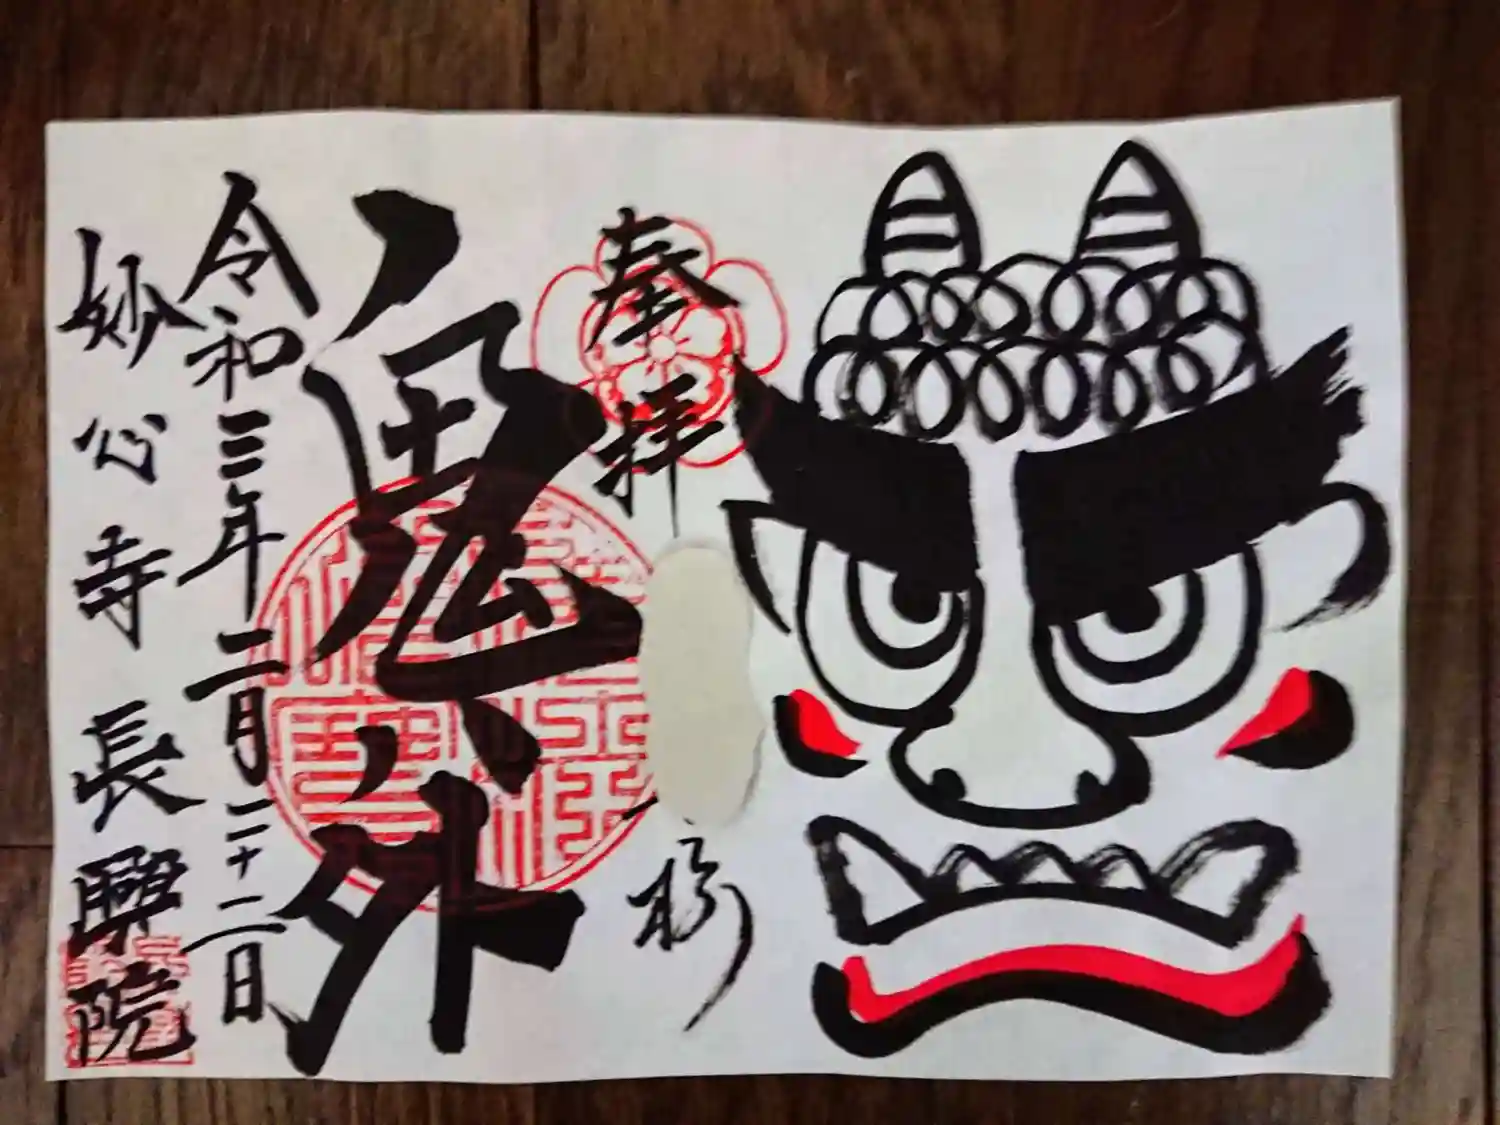 奉拝
様
鬼ハ外
令和三年二月二十二日
妙心寺長興院